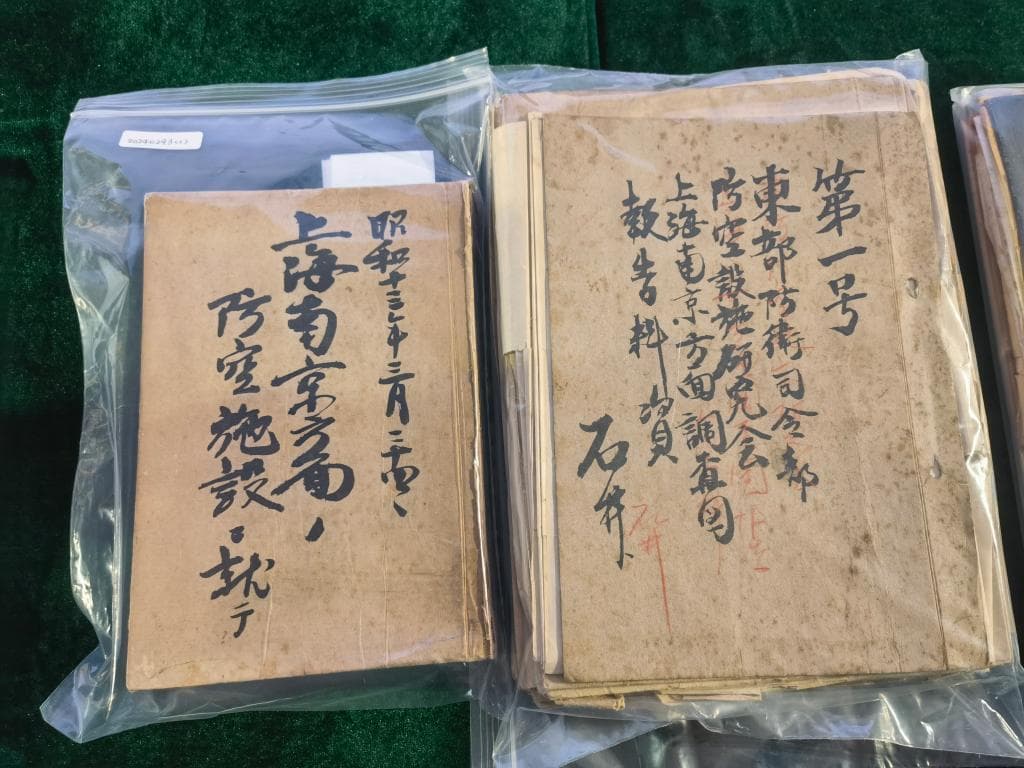 昭和十三年三月二十四日
上海南京方面ノ
防空施設ニ就テ
第一号
東部防衛司令部
防空設施研究会
上海南京方面調査図
報告料
石井
石井